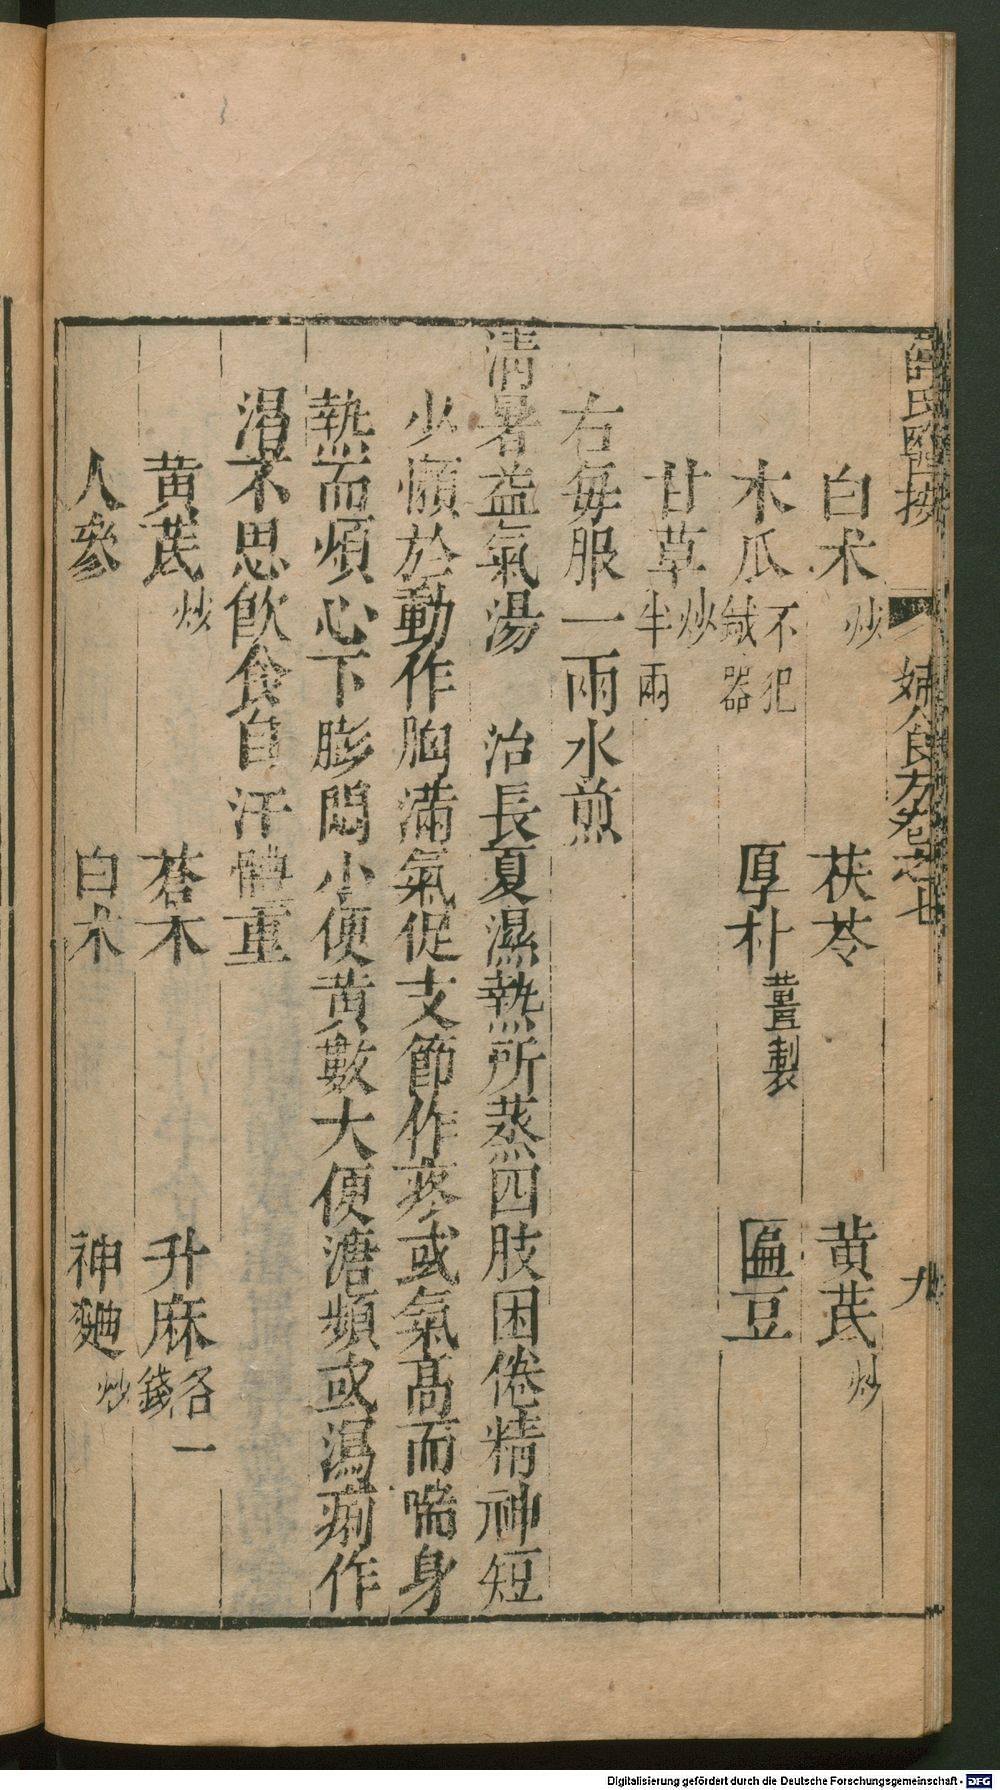 薛氏醫按 婦人良方卷之七 九
白术炒 茯苓 黄芪炒
木瓜不犯鐵器 厚朴薑製 匾豆
甘草炒半兩
右每服一兩水煎
清暑益氣湯 治長夏濕熱所蒸四肢困倦精神短
少懶於動作胸滿氣促支節作疼或氣高而喘身
熱而煩心下膨悶小便黄數大便溏頻或瀉痢作
渴不思飲食自汗體重
黄芪炒 蒼术 升麻各一錢
人參 白术 神麯炒
Digitalisierung gefördert durch die Deutsche Forschungsgemeinschaft - DFG